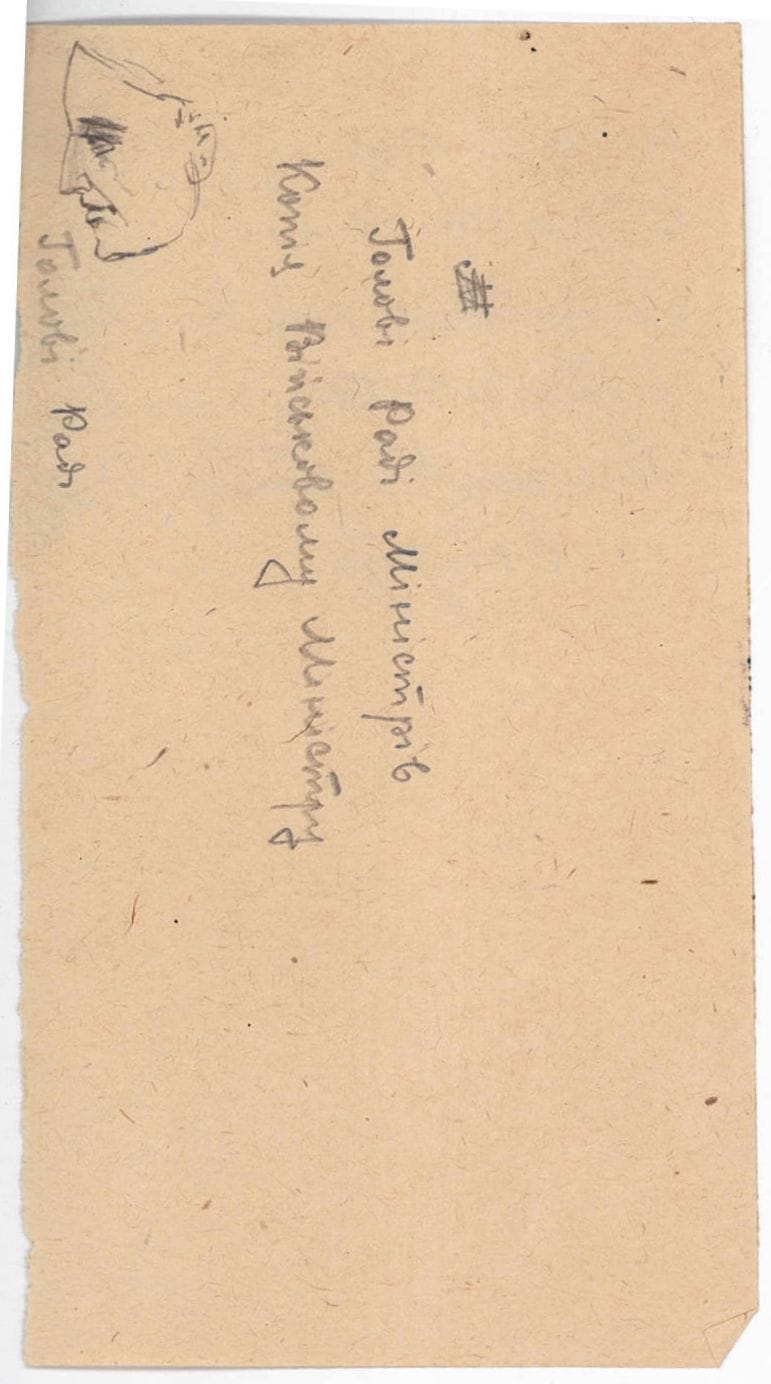 Голові Раді Міністрів
Копія Військовому Міністру
Голові Раді